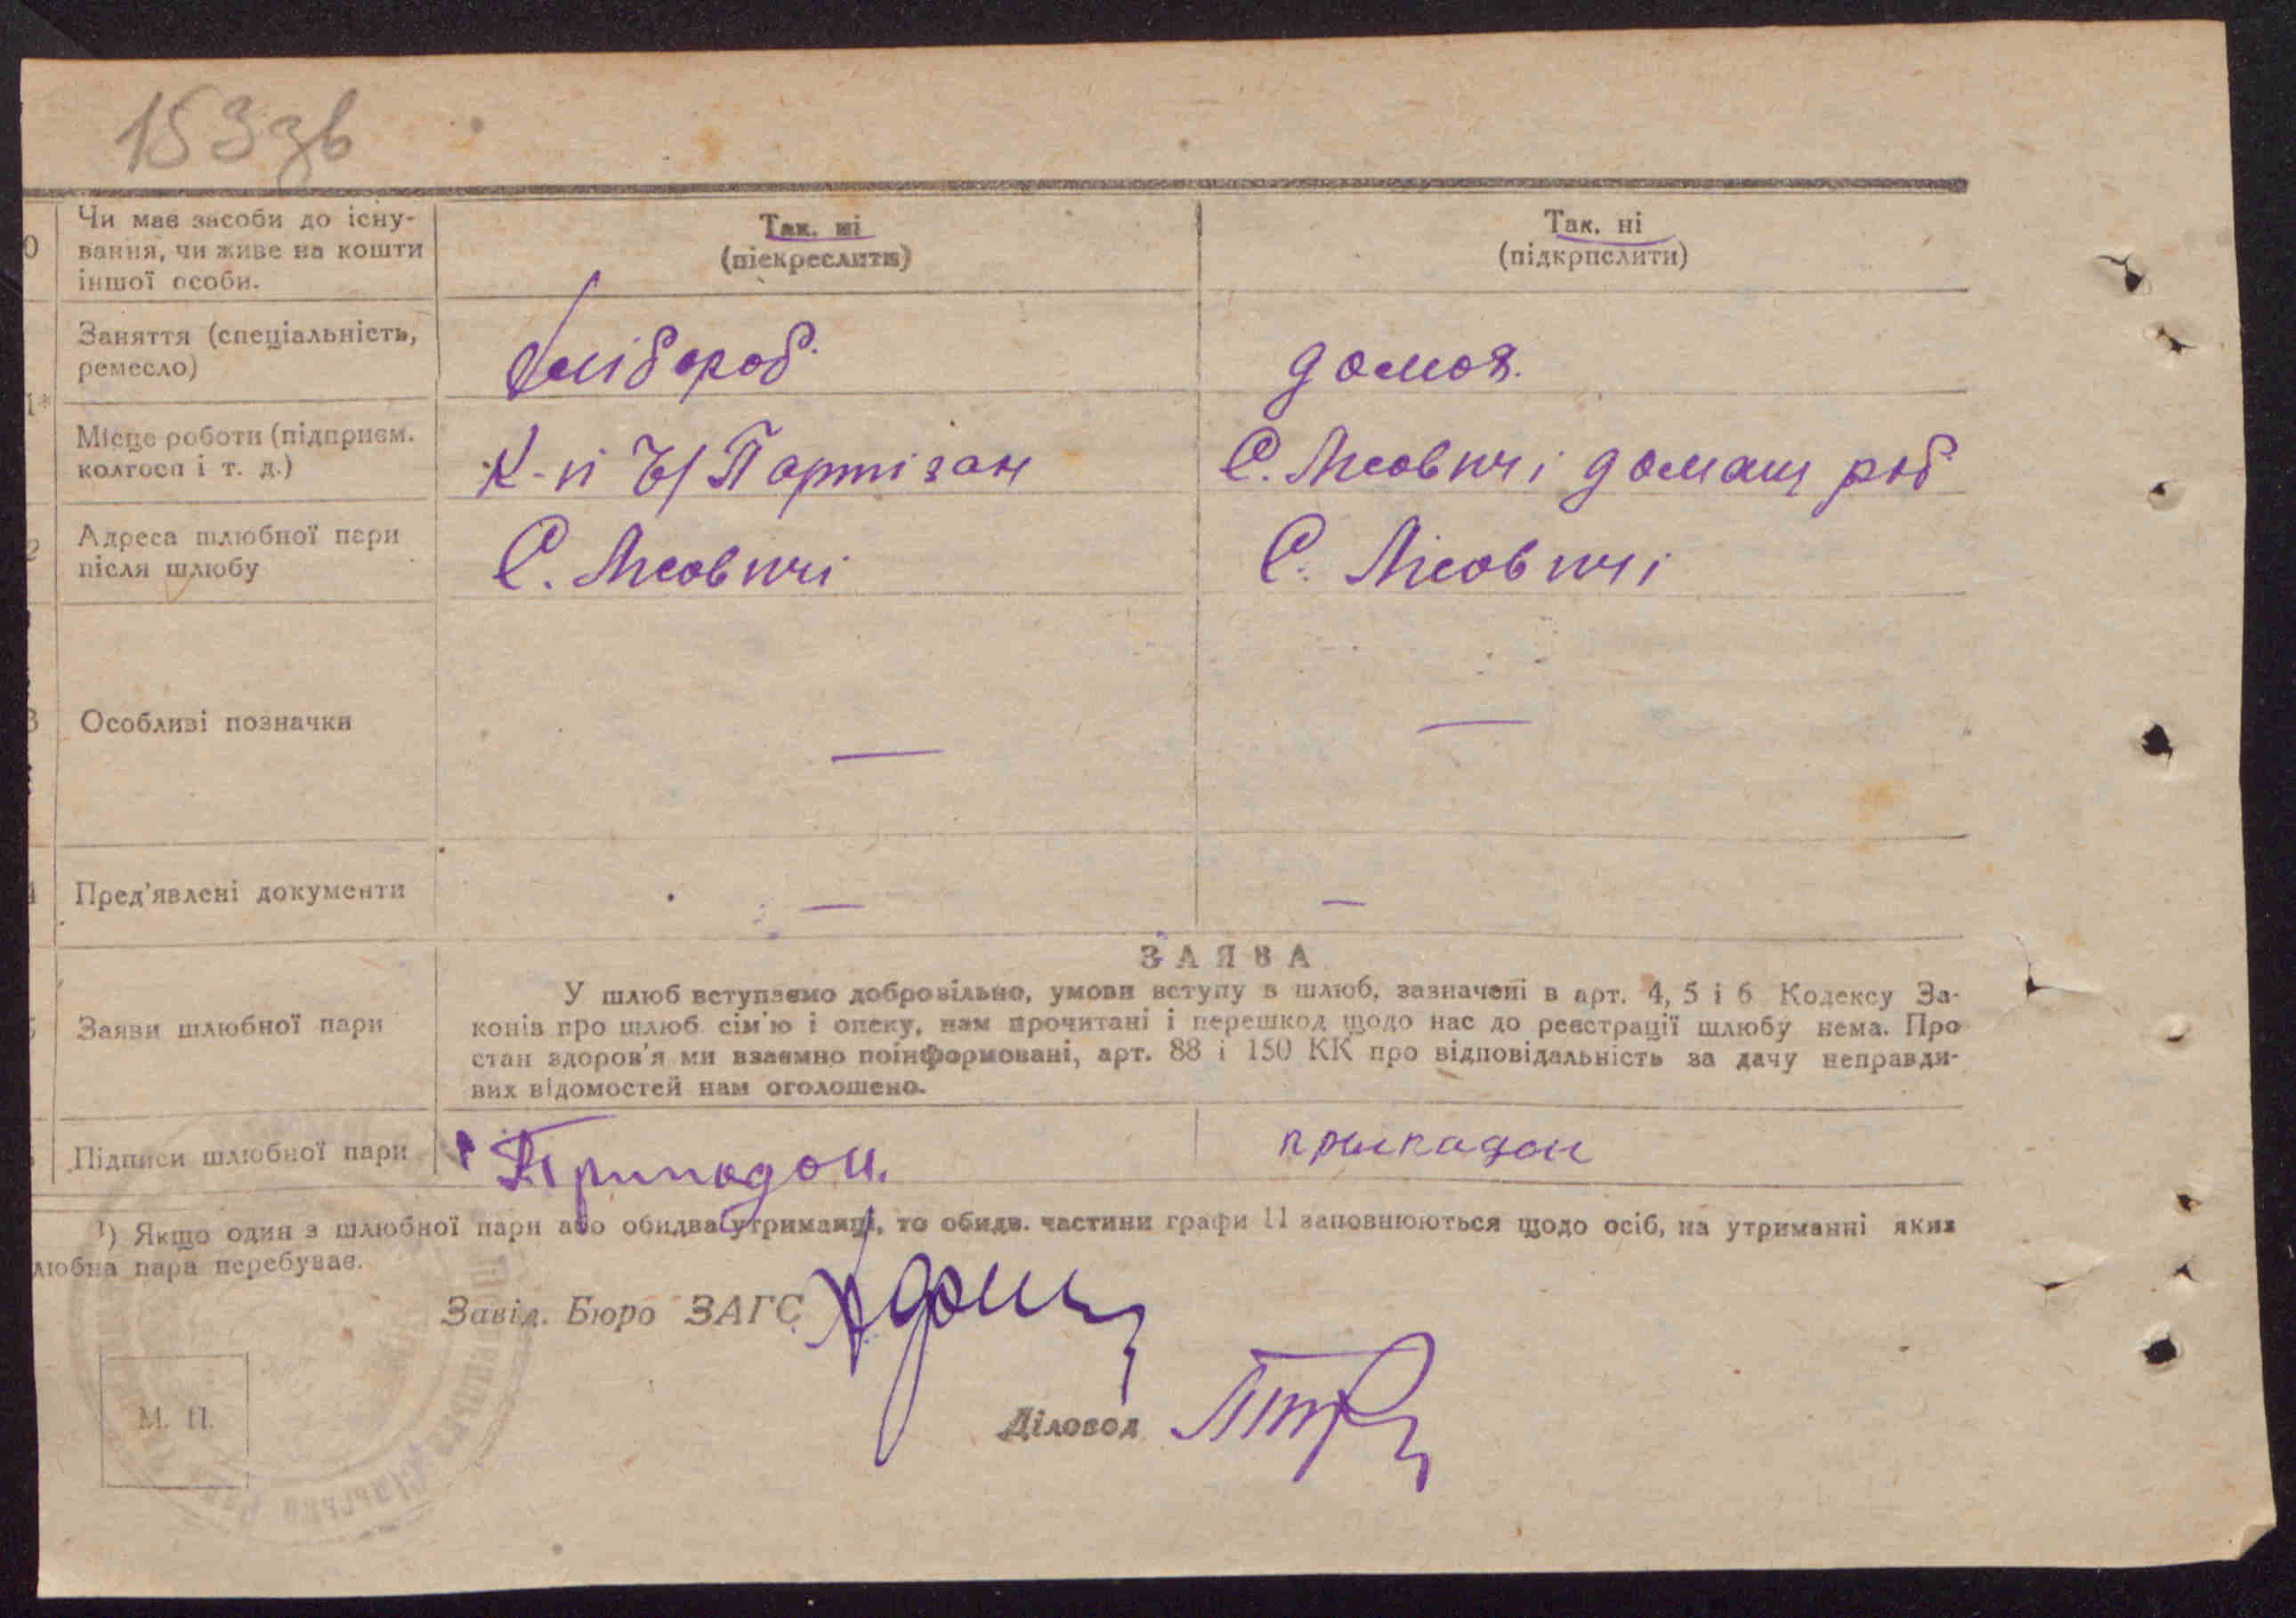 153зв
0 Чи має засоби до існу-
вання, чи живе на кошти
іншої особи.
Так. ні
(піекреслити)
Так. ні
(підкрпслити)
Заняття (спеціальність,
ремесло)
хлібороб.
домов.
1*
Місце роботи (підприєм.
колгосп і т. д.)
К-п Ч/Партізан
С. Лісовичі домаш роб
2 Адреса шлюбної пари
після шлюбу
С. Лісовичі
С. Лісовичі
3 Особливі позначки
—
—
4 Пред'явлені документи
—
—
ЗАЯВА
Заяви шлюбної пари
У шлюб вступаємо добровільно, умови вступу в шлюб, зазначені в арт. 4, 5 і 6 Кодексу За-
конів про шлюб сім'ю і опеку, нам прочитані і перешкод щодо нас до реєстрації шлюбу нема. Про
стан здоров'я ми взаємно поінформовані, арт. 88 і 150 КК про відповідальність за дачу неправди-
вих відомостей нам оголошено.
Підписи шлюбної пари
¹) Якщо один з шлюбної пари або обидва утриманці, то обидв. частини графи 11 заповнюються щодо осіб, на утриманні яких
любна пара перебуває.
Завід. Бюро ЗАГС
Діловод
М. П.